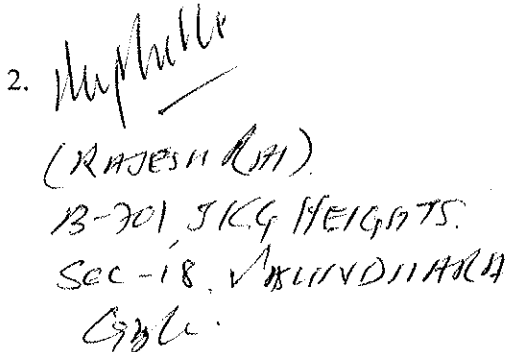 2.
(RAJESH RAI)
B-701, SKG HEIGHTS.
Sec-18, VASUNDHARA
Gzb.